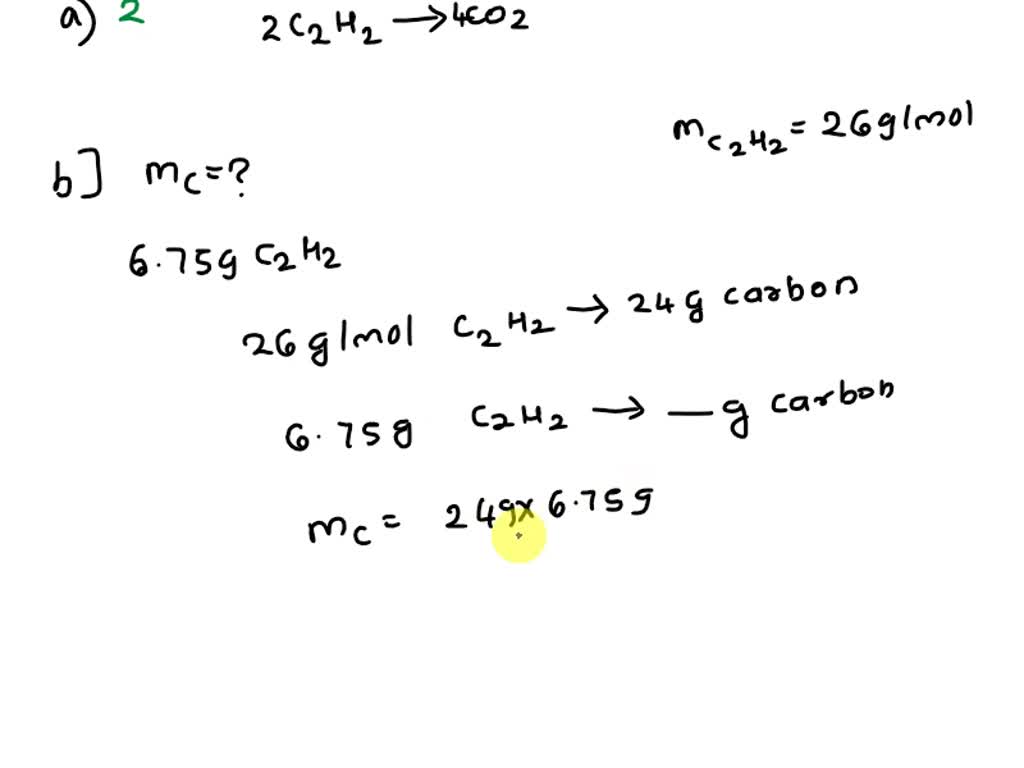 a) 2 2C₂H₂ → 4CO₂
m C₂H₂ = 26g/mol
b] mc = ?
6.75g C₂H₂
26 g/mol C₂H₂ → 24 g carbon
6.75g C₂H₂ → — g carbon
mc = 24g x 6.75g